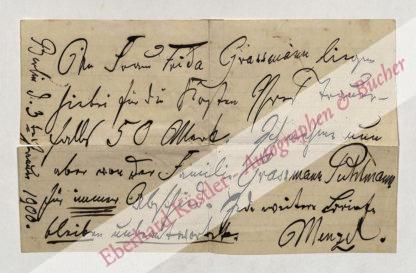 Berlin d. 3. 1900.
An Frau Frida Grassmann liegen
hiebei für die Kosten Ihres Trauer-
falls 50 Mark. nun
aber von der Familie Grassmann Puhlmann
für immer Abschied. Jede weitere Briefe
bleiben unbeantwortet.
Menzel.
Eberhard Köstler Autographen & Bücher